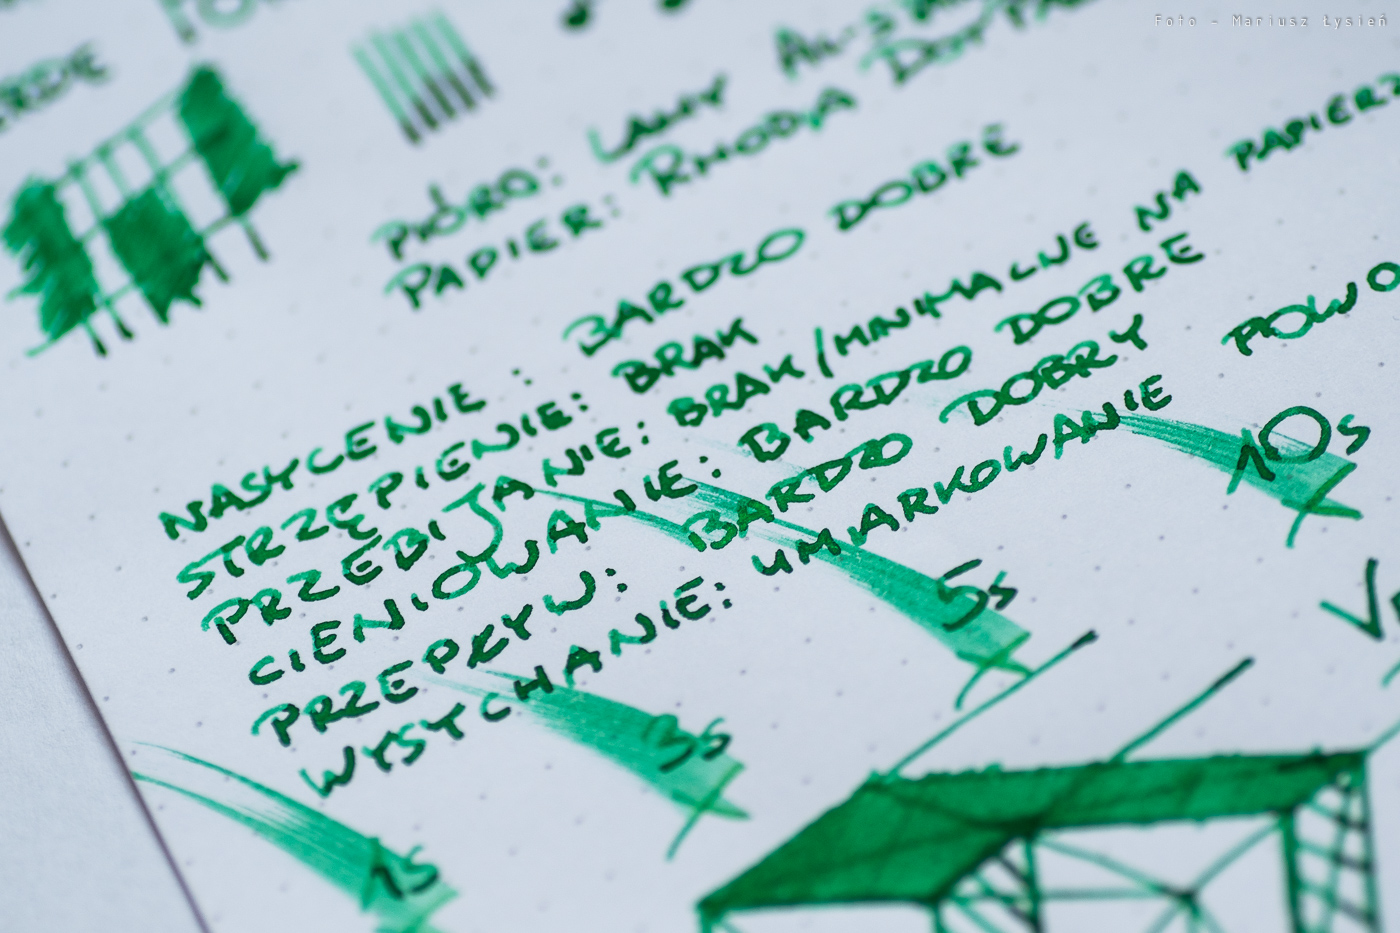 Foto - Mariusz Łysień
PIÓRO: LAMY AL-
PAPIER: RHODIA
NASYCENIE : BARDZO DOBRE
STRZĘPIENIE: BRAK
PRZEBIJANIE: BRAK/MINIMALNE NA PAPIERZ
CIENIOWANIE: BARDZO DOBRE
PRZEPŁYW: BARDZO DOBRY
WYSYCHANIE: UMIARKOWANIE POWO
1s
3s
5s
10s